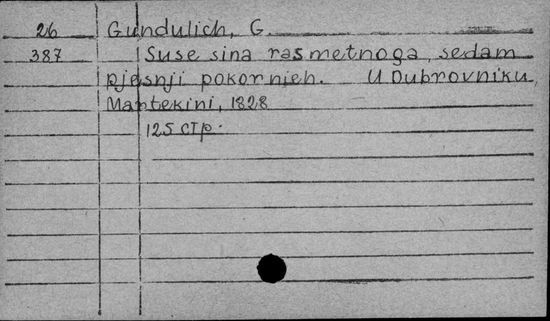 26 Gundulich, G.
387 Suse sina rasmetnoga, sedam
pjesnji pokornieh. U Dubrovniku,
Martekini, 1828
125 стр.